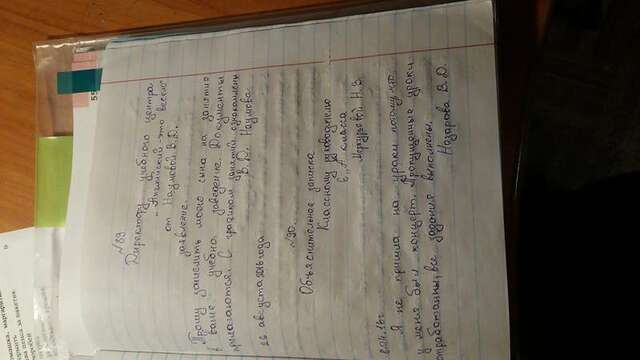 омашка, маргаритк
ормить
за пакетик
воробей
55
№89
Директору учебного центра
„Английский-это весело"
от Наумовой В.Д.
заявление.
Прошу зачислить моего сына на занятие
в ваше учебно заведение. Документы
прилагаются. С графиком занятий ознакомлены
В. Д. Наумова
26 августа 2016 года
№90.
Объяснительная записка
Классному руководителю
6 „А" класса
Меркурьевой Н. В.
Я не пришла на уроки потому что
у меня был концерт. Пропущенные уроки
отработаны, все задания выполнены.
Назарова В. Д.